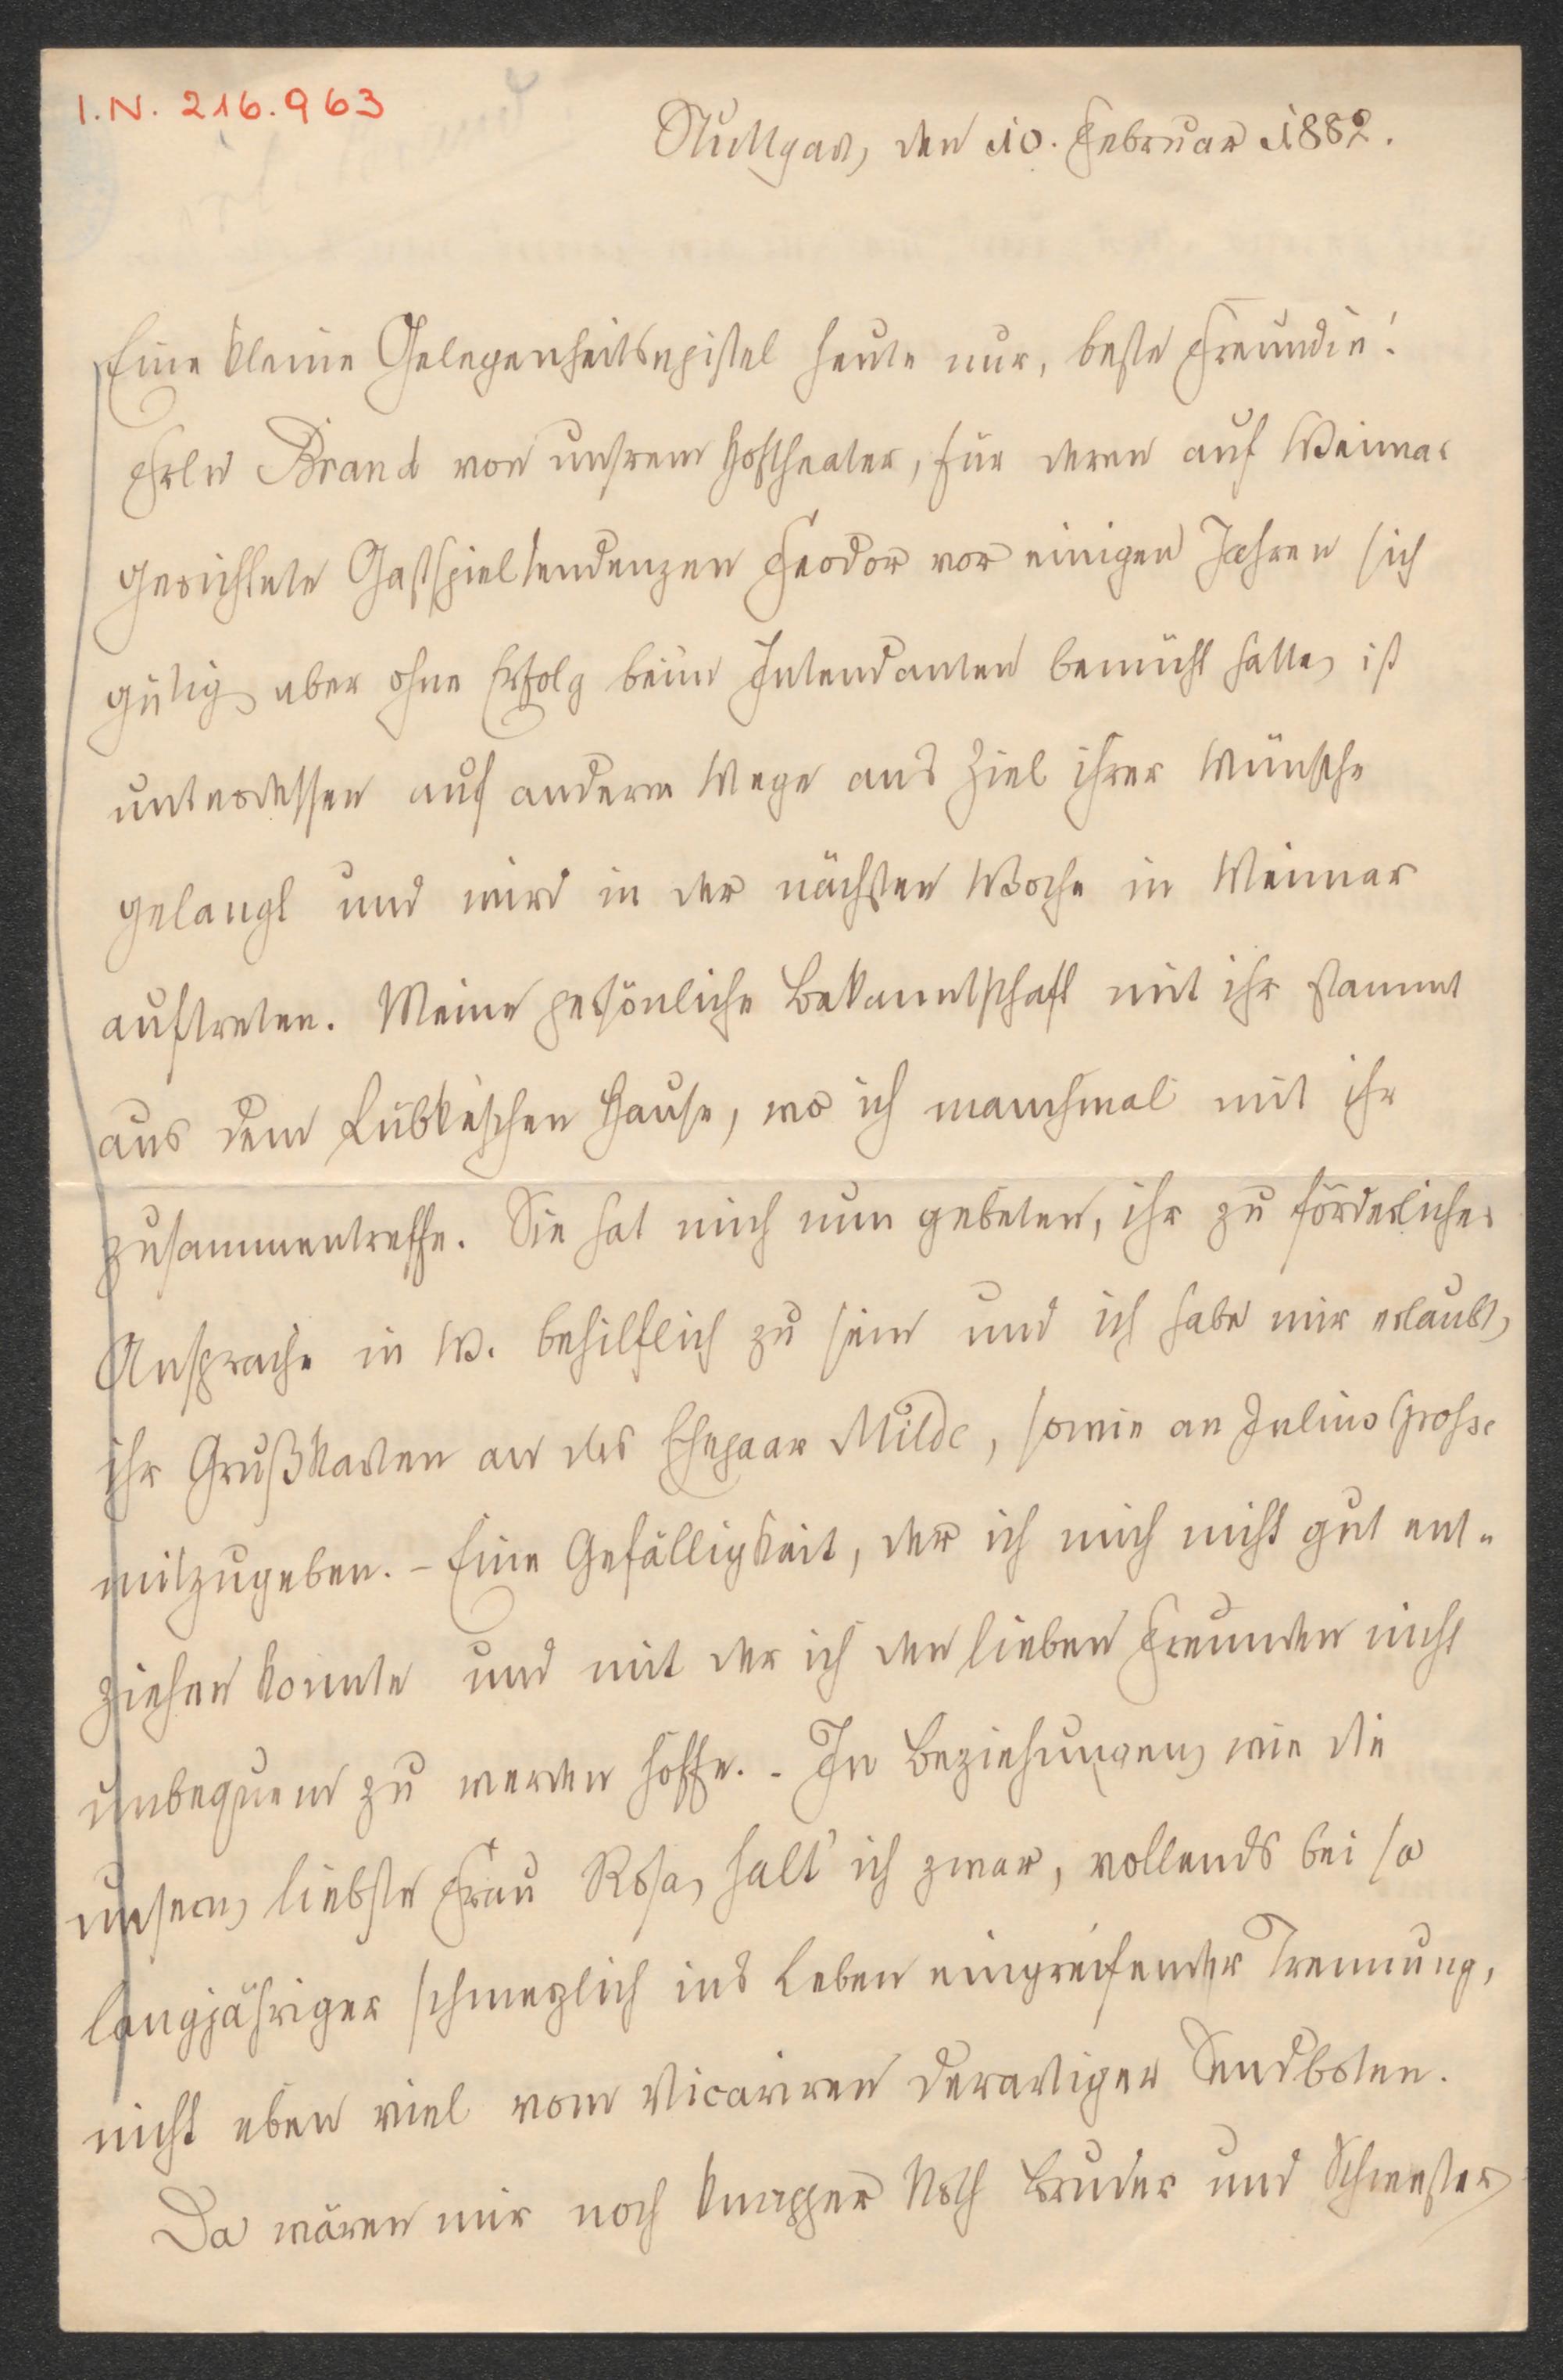 I.N. 216.963
Stuttgart, den 10. Februar 1882.
Eine kleine Gelegenheitsepistel heute nur, beste Freundin!
Frln Brand von unsrem Hoftheater, für deren auf Weimar
gerichtete Gastspieltendenzen Feodor vor einigen Jahren sich
gütig aber ohne Erfolg beim Intendanten bemüht hatte, ist
unterdessen auf anderm Wege ans Ziel ihrer Wünsche
gelangt und wird in der nächsten Woche in Weimar
auftreten. Meine persönliche Bekanntschaft mit ihr stammt
aus dem Lübkeschen Hause, wo ich manchmal mit ihr
zusammentreffe. Sie hat mich nun gebeten, ihr zu förderlicher
Ansprache in W. behilflich zu sein und ich habe mir erlaubt,
ihr Grußkarten an das Ehepaar Milde, sowie an Julius Grosse
mitzugeben. – Eine Gefälligkeit, der ich mich nicht gut ent-
ziehen konnte und mit der ich den lieben Freunden nicht
unbequem zu werden hoffe. – In Beziehungen, wie die
unsern, liebste Frau Rosa, halt' ich zwar, vollends bei so
langjähriger schmerzlich ins Leben eingreifender Trennung,
nicht eben viel vom Vicariren derartiger Sendboten.
Da wären mir noch knapper Noth Bruder und Schwester